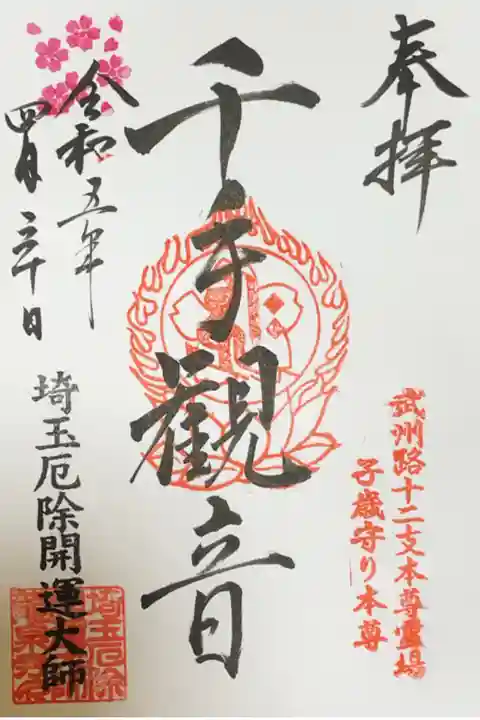 奉拝
武州路十二支本尊霊場
子歳守り本尊
千手観音
令和五年
四月三十日
埼玉厄除開運大師